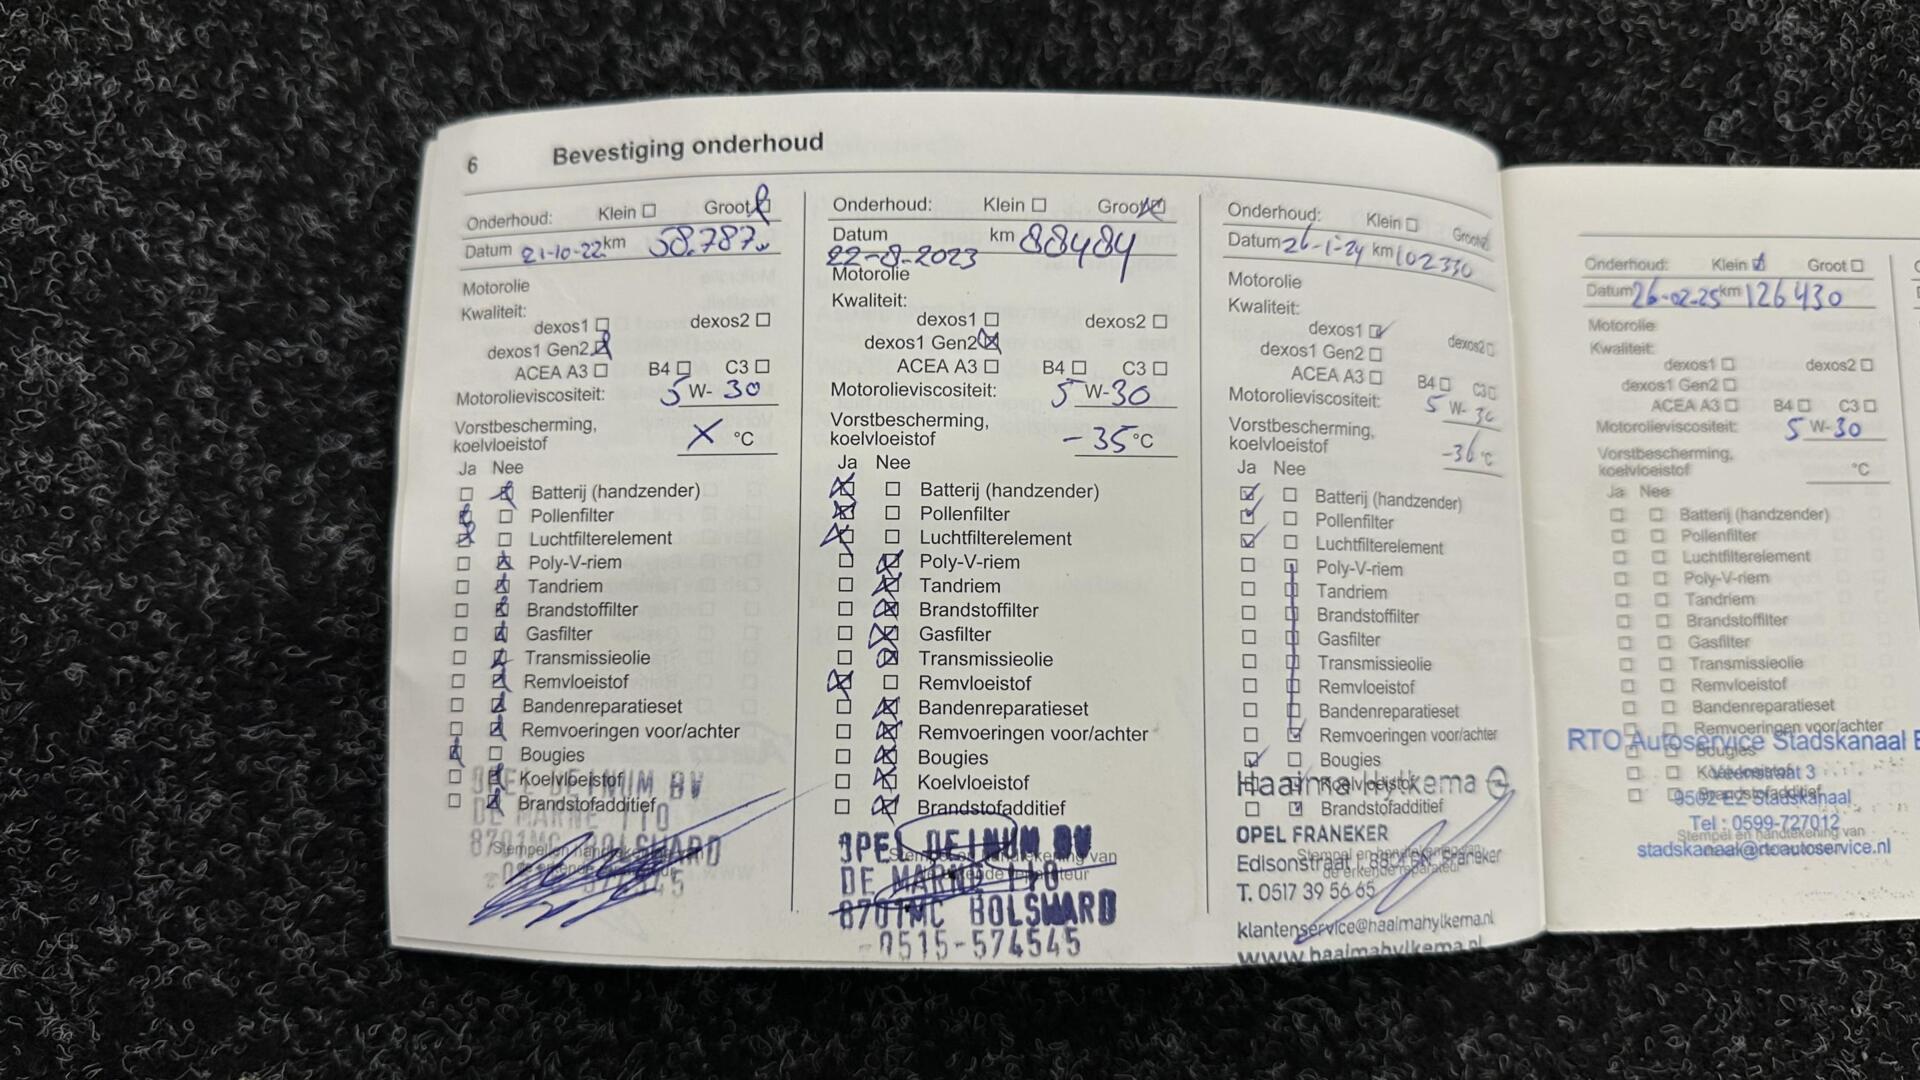 6 Bevestiging onderhoud
Onderhoud: Klein Groot
Datum 21-10-22 km 58.787
Motorolie
Kwaliteit:
dexos1 dexos2
dexos1 Gen2
ACEA A3 B4 C3
Motorolieviscositeit: 5 W- 30
Vorstbescherming,
koelvloeistof X °C
Ja Nee
Batterij (handzender)
Pollenfilter
Luchtfilterelement
Poly-V-riem
Tandriem
Brandstoffilter
Gasfilter
Transmissieolie
Remvloeistof
Bandenreparatieset
Remvoeringen voor/achter
Bougies
Koelvloeistof
Brandstofadditief
OPEL DEINUM BV
DE MARNE 110
8701MC BOLSWARD
Onderhoud: Klein Groot
Datum km 88484
22-8-2023
Motorolie
Kwaliteit:
dexos1 dexos2
dexos1 Gen2
ACEA A3 B4 C3
Motorolieviscositeit: 5 W-30
Vorstbescherming,
koelvloeistof -35 °C
Ja Nee
Batterij (handzender)
Pollenfilter
Luchtfilterelement
Poly-V-riem
Tandriem
Brandstoffilter
Gasfilter
Transmissieolie
Remvloeistof
Bandenreparatieset
Remvoeringen voor/achter
Bougies
Koelvloeistof
Brandstofadditief
OPEL DEINUM BV
Stempel en handtekening van
DE MARNE 110
8701MC BOLSWARD
0515-574545
Onderhoud: Klein Groot
Datum 26-1-24 km 102330
Motorolie
Kwaliteit:
dexos1 dexos2
dexos1 Gen2
ACEA A3 B4 C3
Motorolieviscositeit: 5 W- 30
Vorstbescherming,
koelvloeistof -36 °C
Ja Nee
Batterij (handzender)
Pollenfilter
Luchtfilterelement
Poly-V-riem
Tandriem
Brandstoffilter
Gasfilter
Transmissieolie
Remvloeistof
Bandenreparatieset
Remvoeringen voor/achter
Bougies
Koelvloeistof
Haaima Hylkema
Brandstofadditief
OPEL FRANEKER
Edisonstraat Franeker
T. 0517 39 56 65
klantenservice@haaimahylkema.nl
www.haaimahylkema.nl
Onderhoud: Klein Groot
Datum 26-02-25 km 126430
Motorolie
Kwaliteit:
dexos1 dexos2
dexos1 Gen2
ACEA A3 B4 C3
Motorolieviscositeit: 5 W-30
Vorstbescherming,
koelvloeistof °C
Ja Nee
Batterij (handzender)
Pollenfilter
Luchtfilterelement
Poly-V-riem
Tandriem
Brandstoffilter
Gasfilter
Transmissieolie
Remvloeistof
Bandenreparatieset
Remvoeringen voor/achter
RTO Autoservice Stadskanaal
Bougies
Koelvloeistof
Veenstraat 3
Brandstofadditief
9502 EZ Stadskanaal
Tel : 0599-727012
Stempel en handtekening van
stadskanaal@rtoautoservice.nl